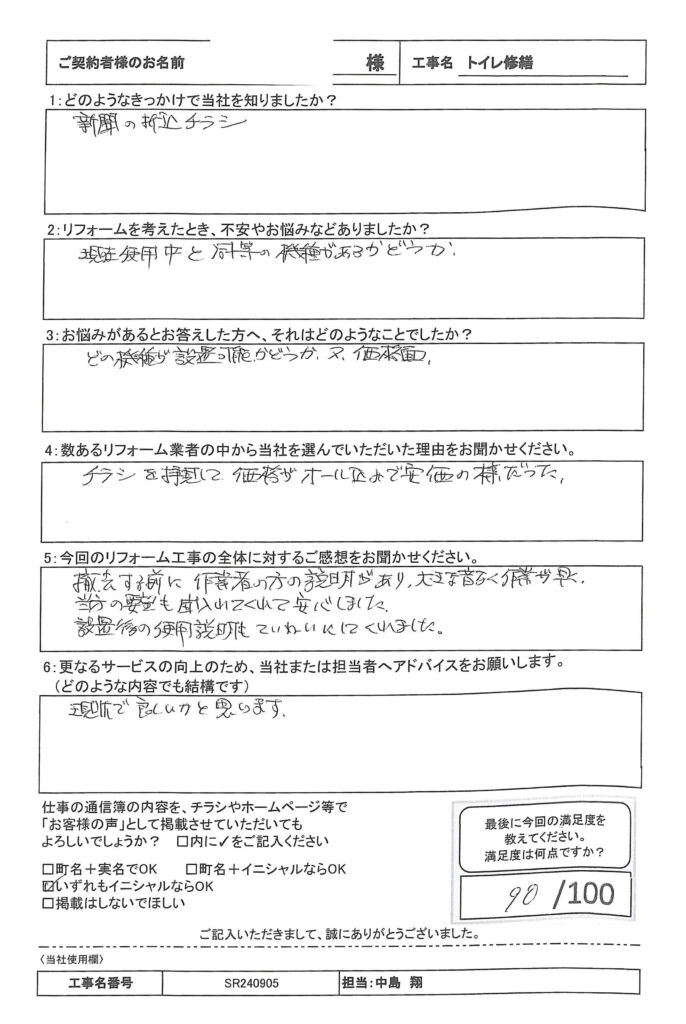 ご契約者様のお名前 様 工事名 トイレ修繕
1:どのようなきっかけで当社を知りましたか?
新聞の折込チラシ
2:リフォームを考えたとき、不安やお悩みなどありましたか?
現在使用中と同等の機種があるかどうか.
3:お悩みがあるとお答えした方へ、それはどのようなことでしたか?
どの機種が設置可能かどうか、又、価格面.
4:数あるリフォーム業者の中から当社を選んでいただいた理由をお聞かせください。
チラシを拝見して価格がオール込みで安価の様だった.
5:今回のリフォーム工事の全体に対するご感想をお聞かせください。
撤去する前に作業者の方の説明があり,大きな音なく作業が早く
当方の要望も受入れてくれて安心しました.
設置後の使用説明もていねいにしてくれました。
6:更なるサービスの向上のため、当社または担当者へアドバイスをお願いします。
(どのような内容でも結構です)
現状で良しいかと思います.
仕事の通信簿の内容を、チラシやホームページ等で
「お客様の声」として掲載させていただいても
よろしいでしょうか? □内に✓をご記入ください
□町名+実名でOK □町名+イニシャルならOK
☑いずれもイニシャルならOK
□掲載はしないでほしい
最後に今回の満足度を
教えてください。
満足度は何点ですか?
90/100
ご記入いただきまして、誠にありがとうございました。
〈当社使用欄〉
工事名番号 SR240905 担当:中島 翔